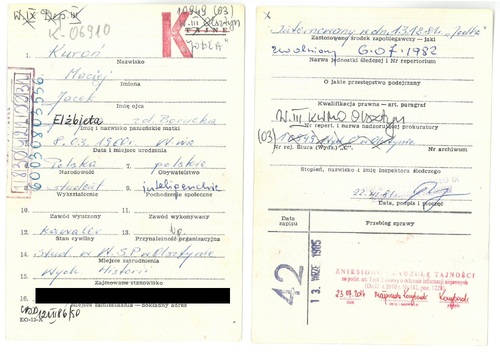 W. IX Dep. III
K-06910
10949 (03)
W. III Olsztyn
TAJNE
K
"JODŁA"
1. Kuroń
Nazwisko
2. Maciej
Imiona
Jacek
Imię ojca
Elżbieta zd. Borucka
Imię i nazwisko panieńskie matki
8.03.1960 W-wa
Data i miejsce urodzenia
Polska 7. polskie
Narodowość Obywatelstwo
student 9. inteligenckie
Wykształcenie Pochodzenie społeczne
10. 11.
Zawód wyuczony Zawód wykonywany
12. kawaler 13. bp.
Stan cywilny Przynależność organizacyjna
14. Stud.
Miejsce zatrudnienia
15. Wydz. Historii
Zajmowane stanowisko
16.
Miejsce zamieszkania — dokładny adres
EO-13-K
60030803556
Internowany w dn. 13.12.81r. "Jodła"
Zastosowany środek zapobiegawczy — jaki
zwolniony 6.07.1982
Nazwa jednostki śledczej i Nr repertorium
O jakie przestępstwo podejrzany
Kwalifikacja prawna — art. paragraf
W. III KWMO Olsztyn
Nr repert. i nazwa nadrzędnej prokuratury
(03) 10949
Nr rej. Biura (Wydz.) „C" Nr archiwum
Stopień, nazwisko i imię inspektora śledczego
22.XII.81r.
Data, podpis i pieczęć
Data zapisu Przebieg sprawy
42
13. MAR. 1985
ZNIESIONO KLAUZULĘ TAJNOŚCI
Małgorzata